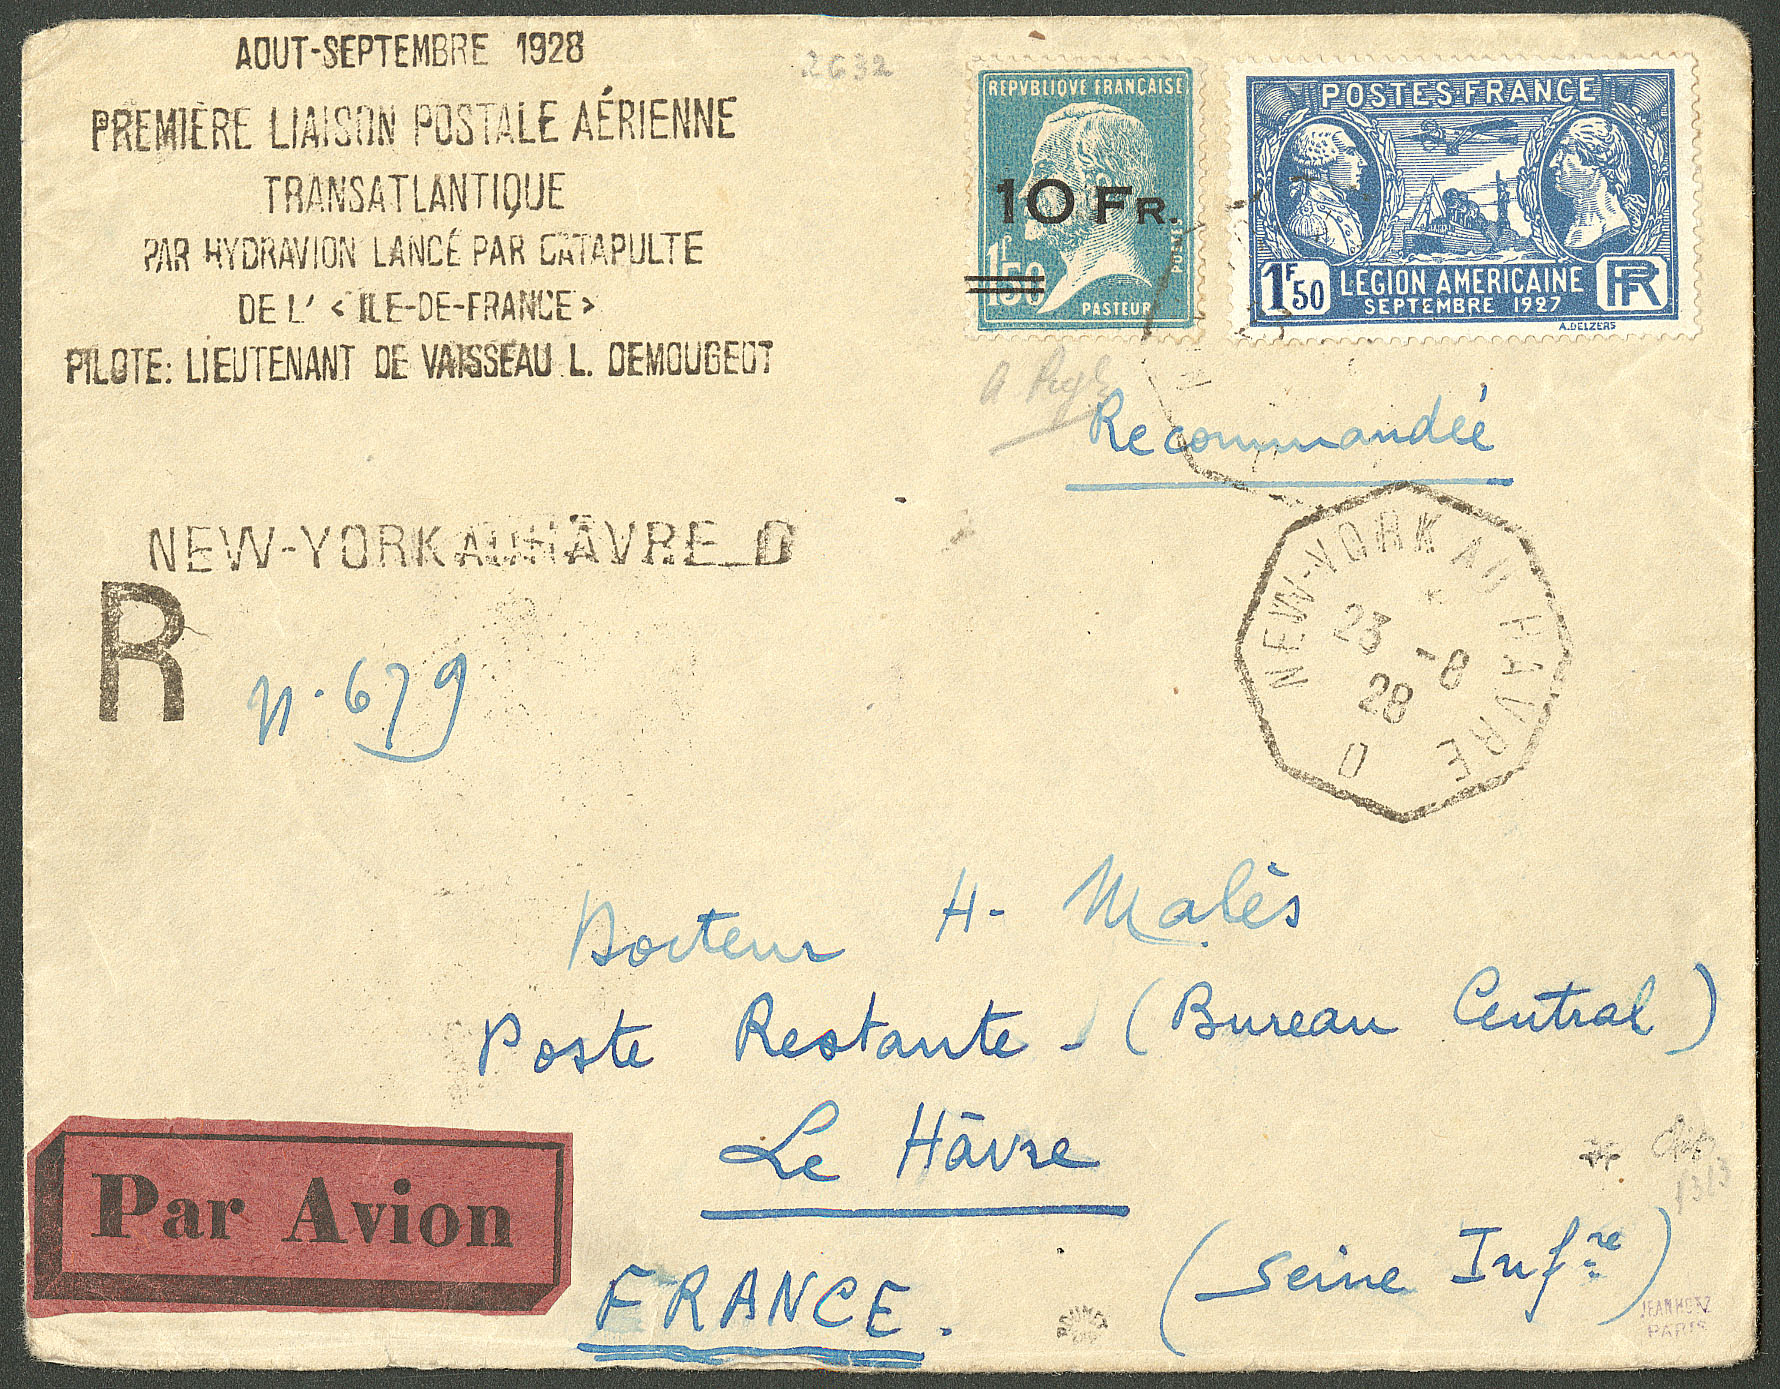 AOUT-SEPTEMBRE 1928
PREMIÈRE LIAISON POSTALE AÉRIENNE
TRANSATLANTIQUE
PAR HYDRAVION LANCÉ PAR CATAPULTE
DE L' < ILE-DE-FRANCE >
PILOTE: LIEUTENANT DE VAISSEAU L. DEMOUGEOT
2632
REPVBLIQVE FRANÇAISE
10 FR.
1F50
POSTES
PASTEUR
POSTES FRANCE
1F50 LEGION AMERICAINE RF
SEPTEMBRE 1927
A.DELZERS
Recommandée
NEW-YORK AU HÂVRE_D
R
N. 679
NEW-YORK AU HAVRE D
23 -8
28
Docteur H- Malès
Poste Restante - (Bureau Central)
Le Hâvre
(Seine Infre)
FRANCE.
Par Avion
ROUMET
JEAN HOTZ
PARIS